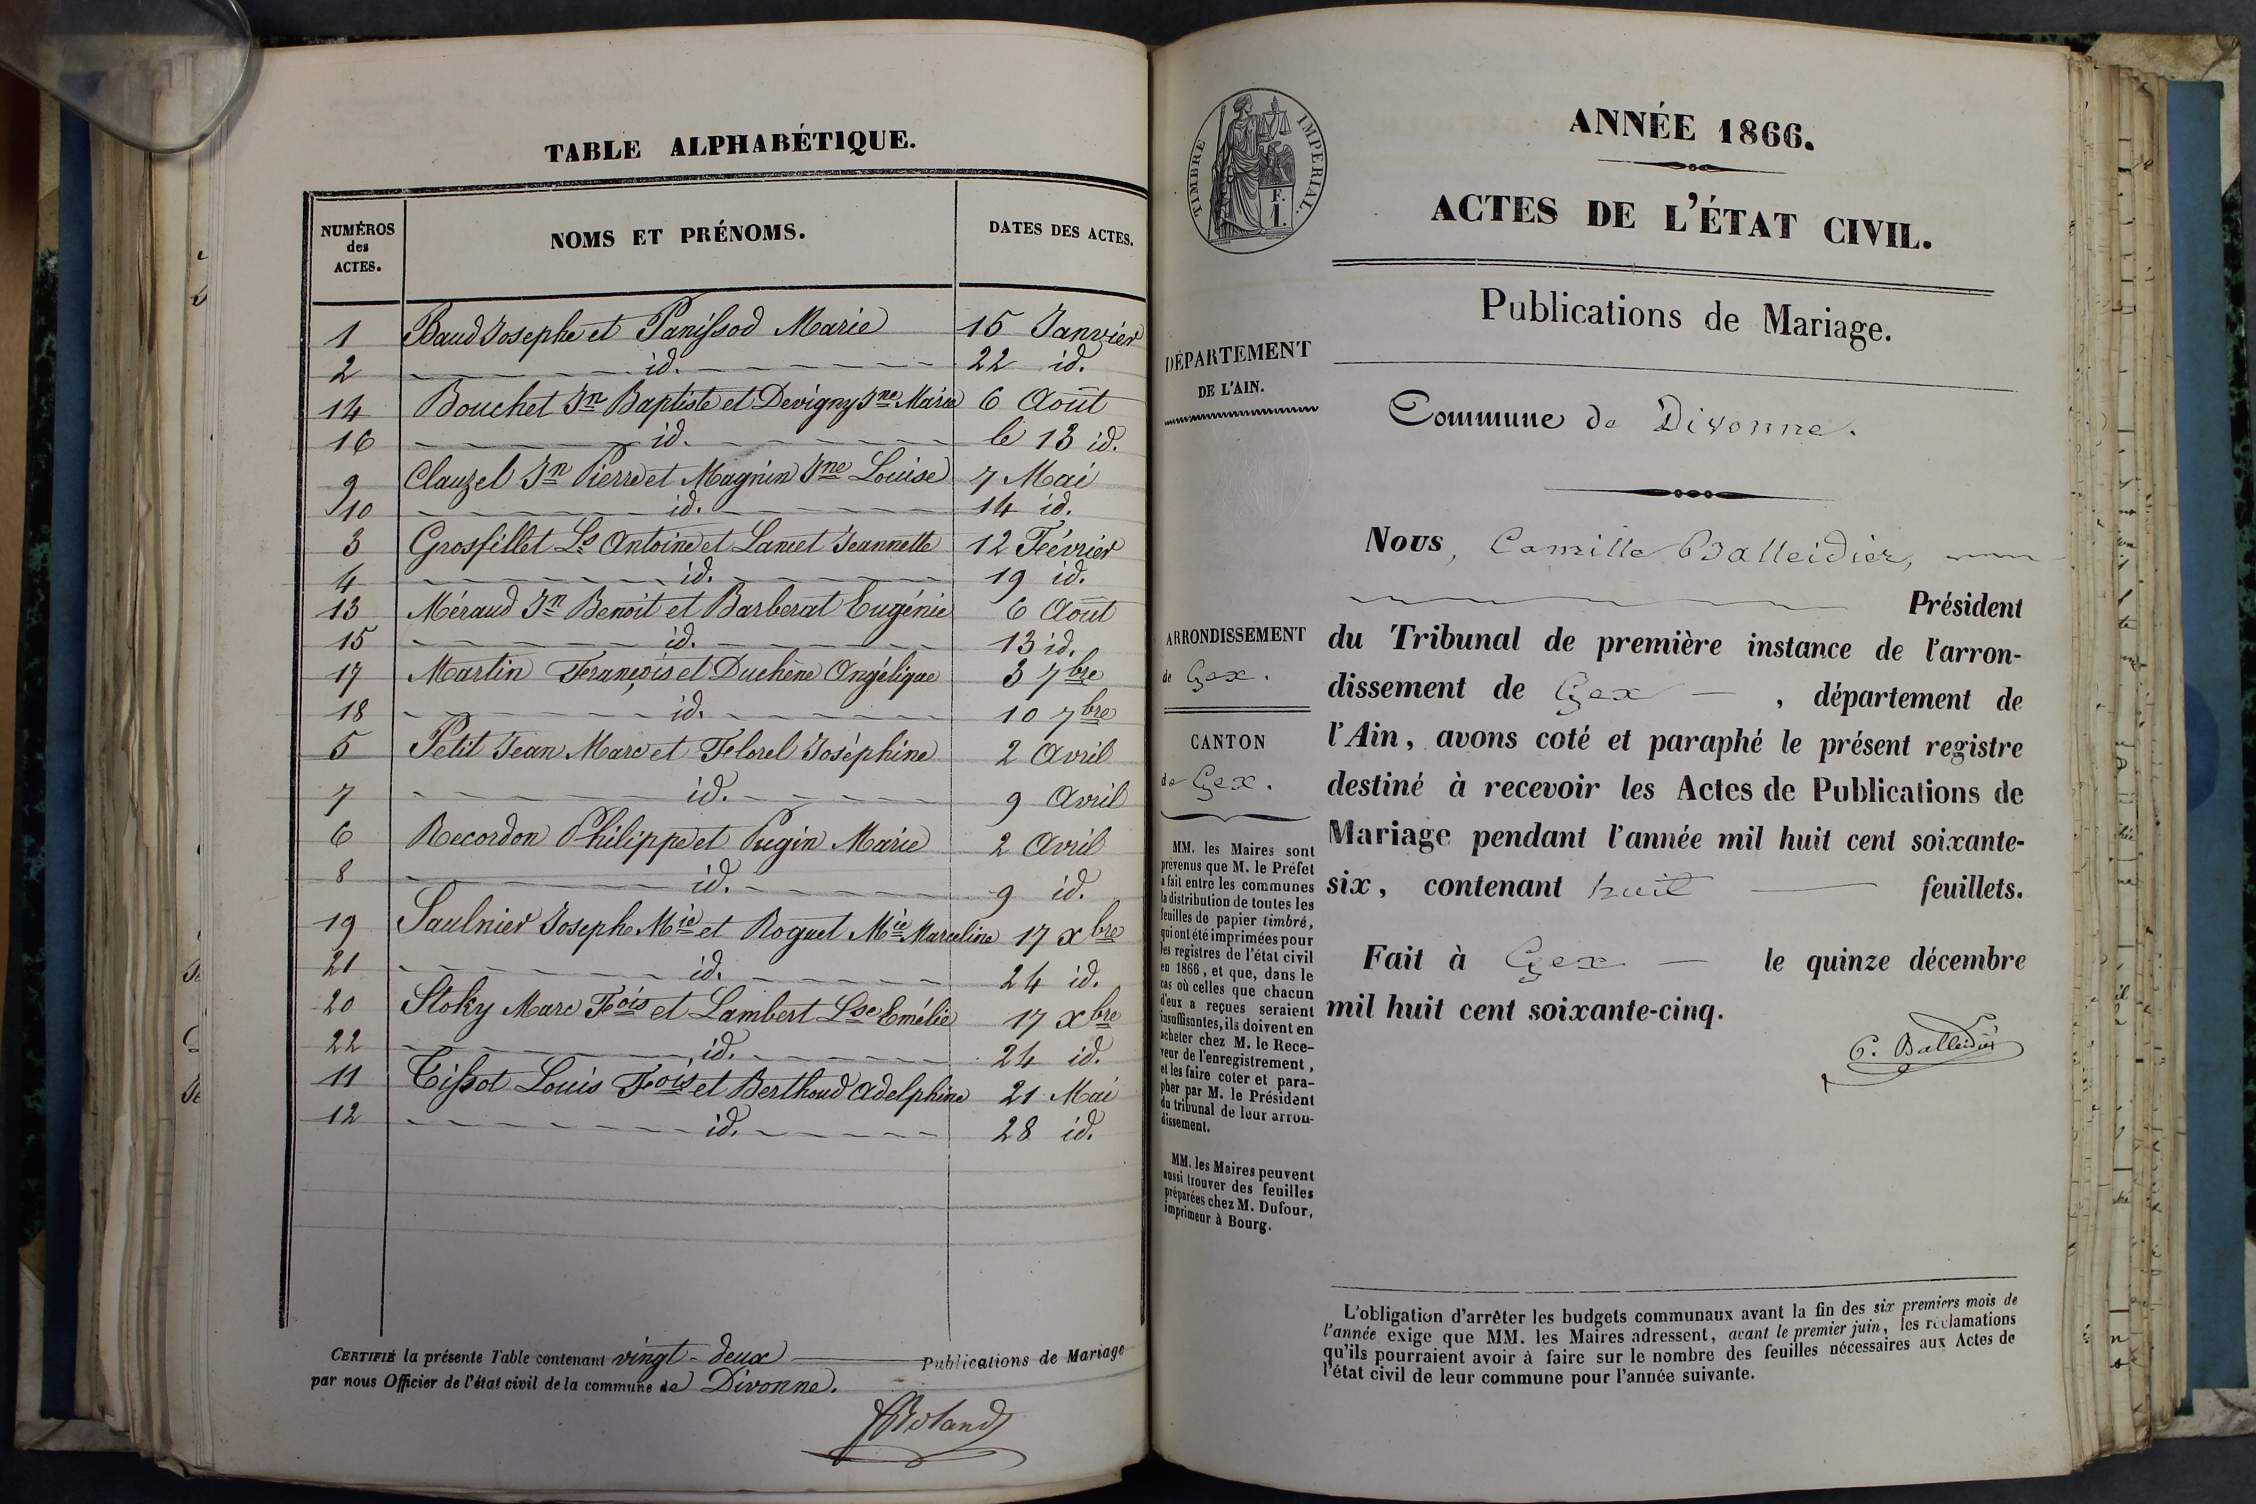 TABLE ALPHABÉTIQUE.
NUMÉROS des ACTES. NOMS ET PRÉNOMS. DATES DES ACTES.
1 Baud Josephe et Panissod Marie 15 Janvier
2 id. 22 id.
14 Bouchet Jn Baptiste et Devigny Jne Marie 6 Août
16 id. le 13 id.
9 Clauzel Jn Pierre et Magnin Jne Louise 7 Mai
10 id. 14 id.
3 Grosfillet Ls Antoine et Lancet Jeannette 12 Février
4 id. 19 id.
13 Méraud Jn Benoit et Barberat Eugénie 6 Août
15 id. 13 id.
17 Martin François et Duchêne Angélique 3 7bre
18 id. 10 7bre
5 Petit Jean Marc et Florel Joséphine 2 Avril
7 id. 9 Avril
6 Recordon Philippe et Pugin Marie 2 Avril
8 id. 9 id.
19 Saulnier Josephe Mie et Roguet Mie Marceline 17 xbre
21 id. 24 id.
20 Stoky Marc Fois et Lambert Lse Emélie 17 xbre
22 id. 24 id.
11 Tissot Louis Fois et Berthoud Adelphine 21 Mai
12 id. 28 id.
CERTIFIÉ la présente Table contenant vingt-deux Publications de Mariage
par nous Officier de l'état civil de la commune de Divonne.
Roland
TIMBRE IMPERIAL.
F.
1.
ANNÉE 1866.
ACTES DE L'ÉTAT CIVIL.
Publications de Mariage.
DÉPARTEMENT
DE L'AIN.
Commune de Divonne.
Nous, Camille Balleidier,
Président
ARRONDISSEMENT
de Gex.
CANTON
de Gex.
du Tribunal de première instance de l'arron-
dissement de Gex, département de
l'Ain, avons coté et paraphé le présent registre
destiné à recevoir les Actes de Publications de
Mariage pendant l'année mil huit cent soixante-
six, contenant huit feuillets.
Fait à Gex le quinze décembre
mil huit cent soixante-cinq.
C. Balleidier
MM. les Maires sont
prévenus que M. le Préfet
a fait entre les communes
la distribution de toutes les
feuilles de papier timbré,
qui ont été imprimées pour
les registres de l'état civil
en 1866, et que, dans le
cas où celles que chacun
d'eux a reçues seraient
insuffisantes, ils doivent en
acheter chez M. le Rece-
veur de l'enregistrement,
et les faire coter et para-
pher par M. le Président
du tribunal de leur arron-
dissement.
MM. les Maires peuvent
aussi trouver des feuilles
préparées chez M. Dufour,
imprimeur à Bourg.
L'obligation d'arrêter les budgets communaux avant la fin des six premiers mois de
l'année exige que MM. les Maires adressent, avant le premier juin, les réclamations
qu'ils pourraient avoir à faire sur le nombre des feuilles nécessaires aux Actes de
l'état civil de leur commune pour l'année suivante.